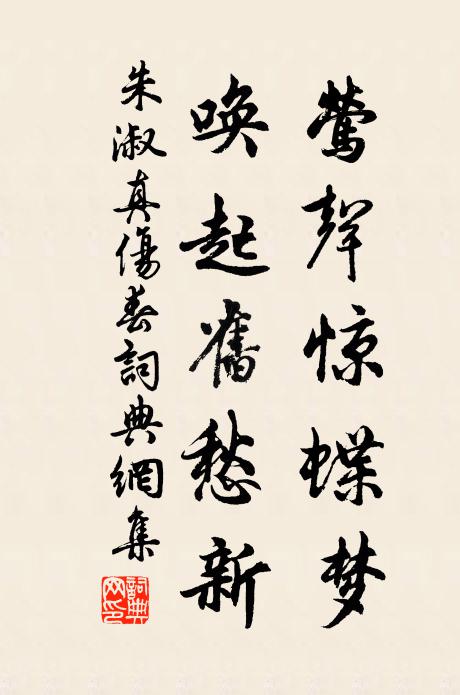 鶯聲惊蝶梦
唤起舊愁新
朱淑真傷春詞典網集
詞典网印